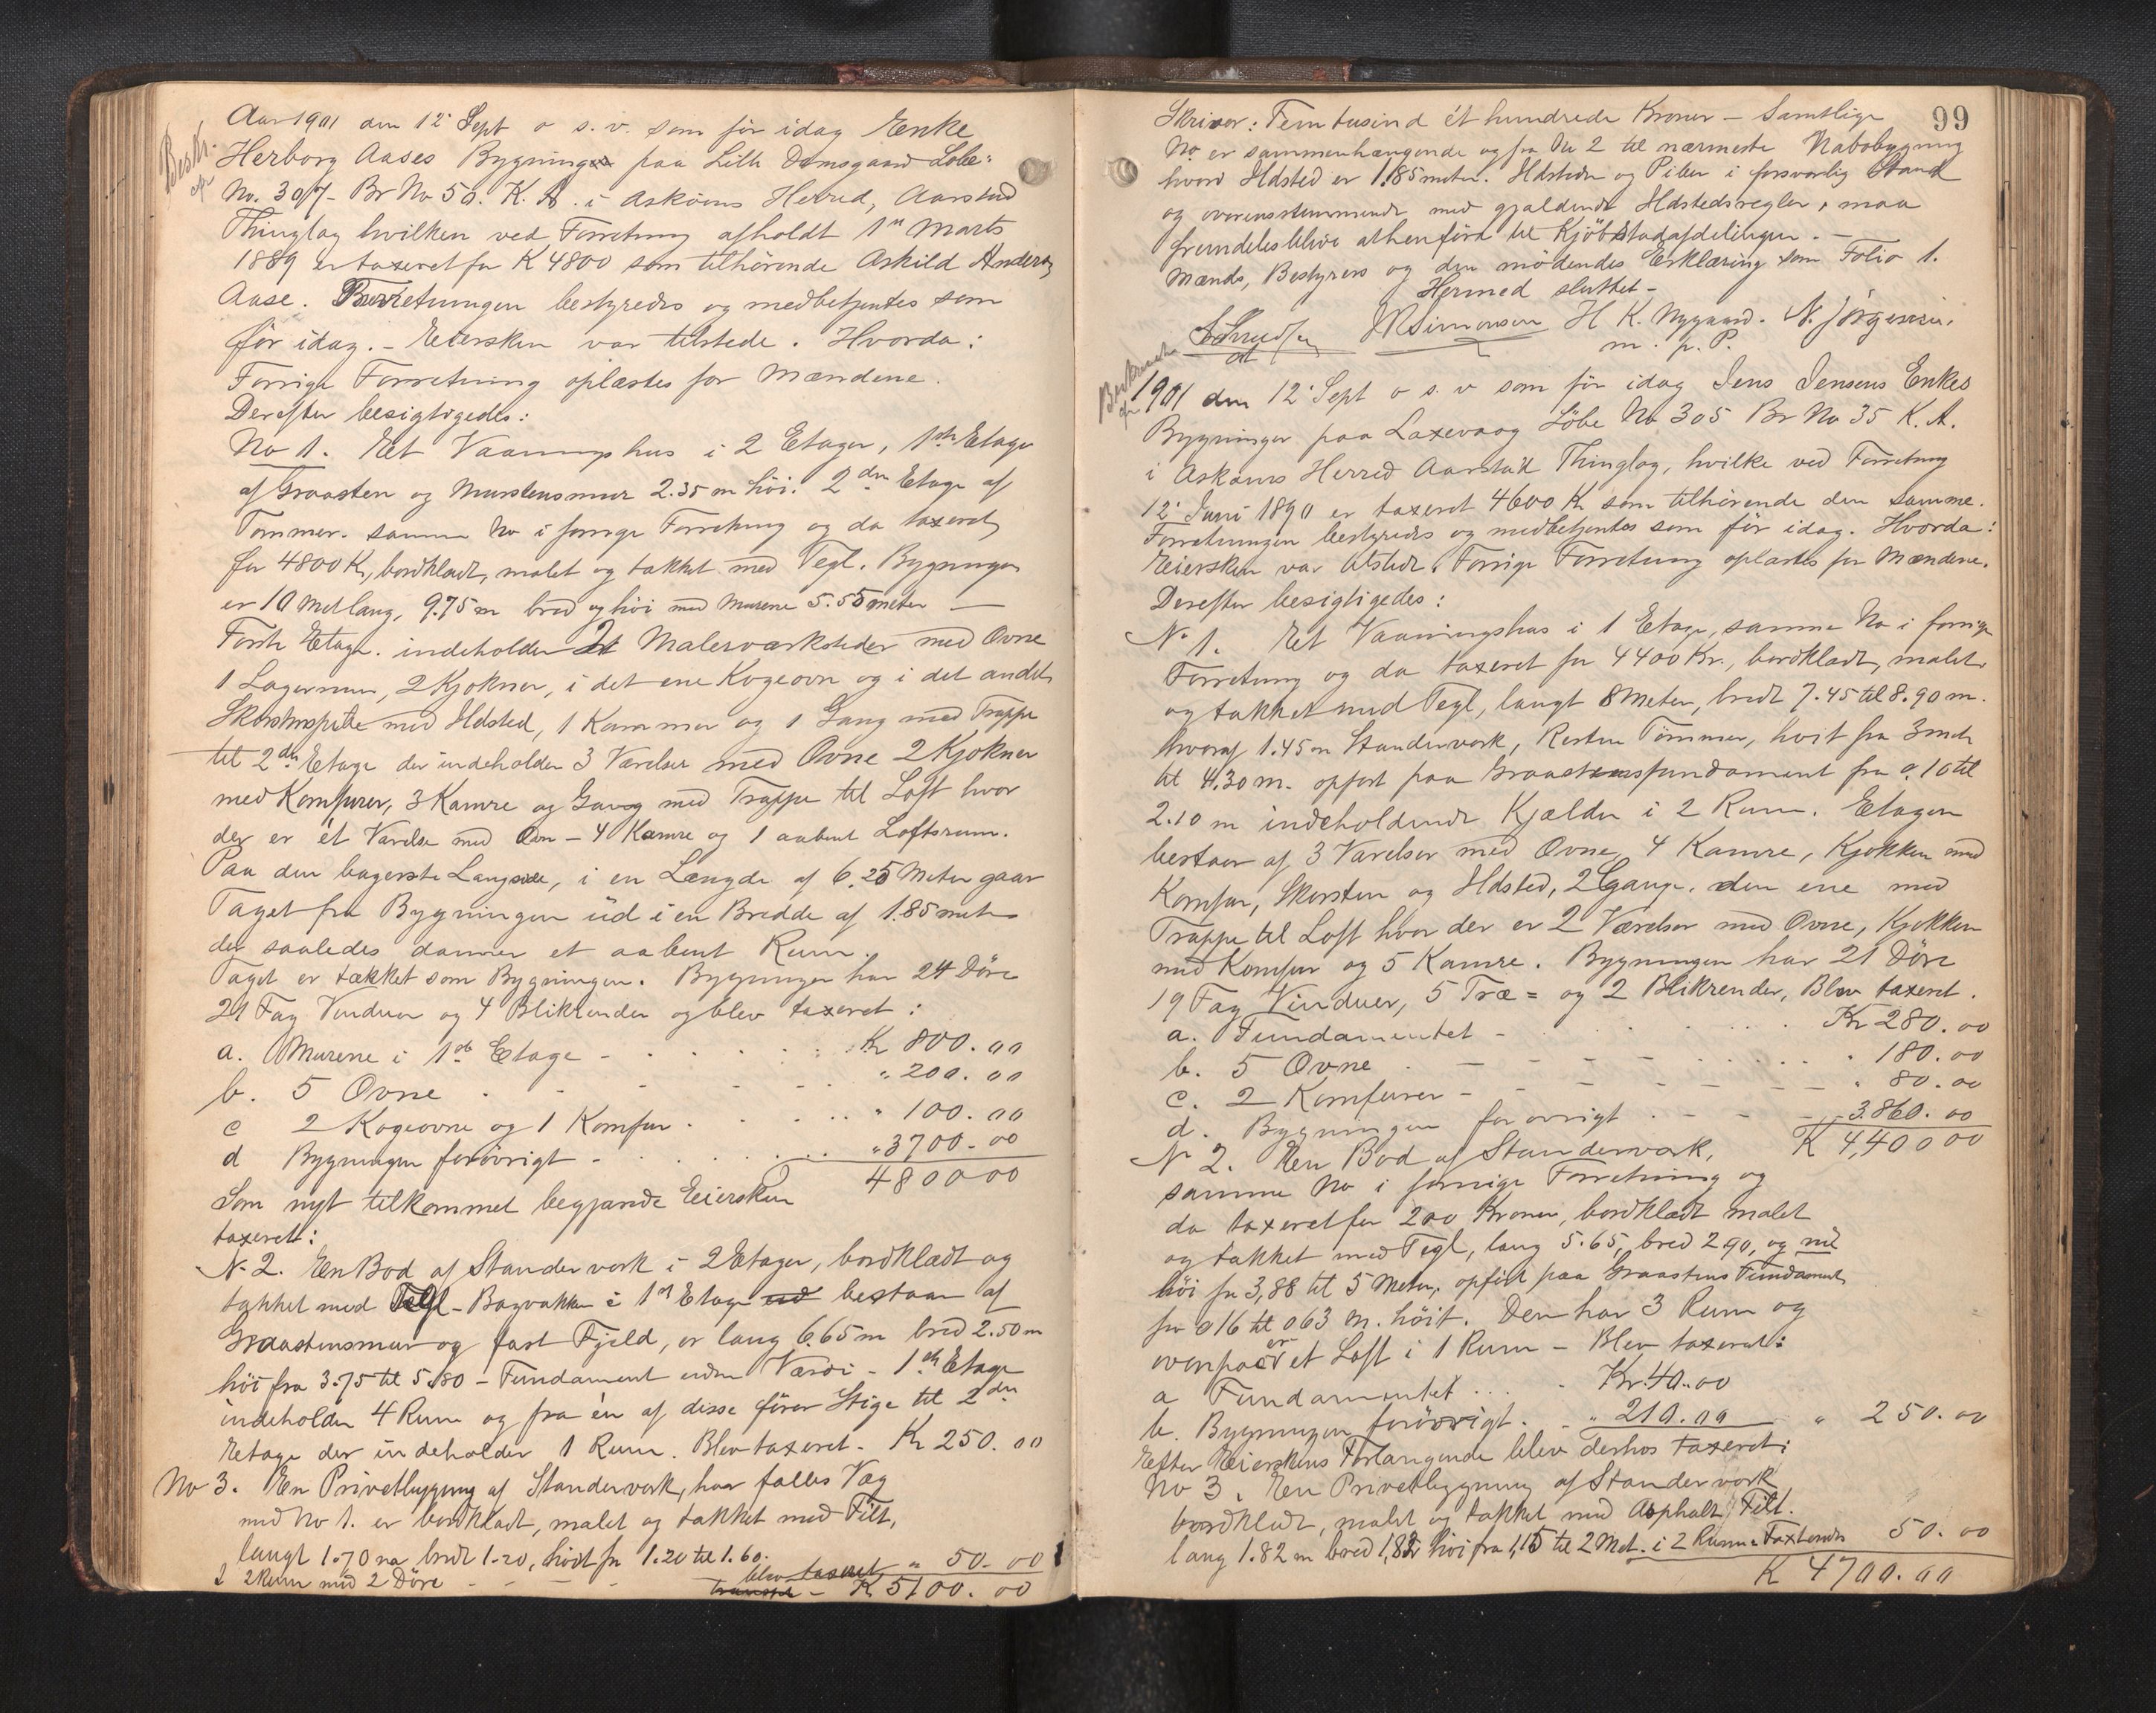 Bestr.
cfr
Aar 1901 den 12' Sept o s. v. som før idag Enke
Herborg Aases Bygninger paa Lille Damsgaard Løbe=
No. 307 - Br No 50. K. A. i Askøens Herred, Aarstad
Thinglag hvilken ved Forretning afholdt 1ste Marts
1889 er taxeret for K 4800 som tilhørende Askild Anders.
Aase. Forretningen bestyredes og medbetjentes som
før idag. - Eiersken var tilstede. Hvorda:
Forrige Forretning oplæstes for Mændene.
Derefter besigtigedes:
No 1. Et Vaaningshus i 2 Etager, 1ste Etage
af Graasten og Murstensmur 2.35 m høi. 2den Etage af
Tømmer. samme No i forrige Forretning og da taxeret
for 4800 K, bordklædt, malet og tækket med Tegl. Bygningen
er 10 Met lang, 9.75 m bred og høi med Murene 5.55 meter —
Første Etage. indeholder 2 Malerværksteder med Ovne
1 Lagerrum, 2 Kjøkner, i det ene Kogeovn og i det andet
Skorstenspibe med Ildsted, 1 Kammer og 1 Gang med Trappe
til 2den Etage der indeholder 3 Værelser med Ovne 2 Kjøkner
med Komfurer, 3 Kamre og Gang med Trappe til Loft hvor
der er ét Værelse med Ovn - 4 Kamre og 1 aabent Loftsrum.
Paa den bagerste Langside, i en Længde af 6.25 Meter gaar
Taget fra Bygningen ud i en Bredde af 1.85 meter
der saaledes danner et aabent Rum.
Taget er tækket som Bygningen. Bygningen har 24 Døre
21 Fag Vinduer og 4 Blikrender og blev taxeret:
a. Murene i 1ste Etage - . . . . Kr 800.00
b. 5 Ovne . - - - . . " 200.00
c 2 Kogeovne og 1 Komfur . . . . . " 100.00
d Bygningen forøvrigt - . . . . . " 3700-00
4800 00
Som nyt tilkommet begjærede Eiersken
taxeret:
No 2. En Bod af Standerværk i 2 Etager, bordklædt og
tækket med Tegl - Bagvækken i 1ste Etage ud bestaar af
Graastensmur og fast Fjeld, er lang 6.65 m bred 2.50 m
høi fra 3.75 til 5.80 - Fundament uden Værdi - 1ste Etage
indeholder 4 Rum og fra én af disse fører Stige til 2den
Etage der indeholder 1 Rum. Blev taxeret - Kr 250.00
No 3. En Privetbygning af Standerværk, har fælles Væg
med No 1. er bordklædt, malet og tækket med Filt,
langt 1.70 m bredt 1.20, høit fra 1.20 til 1.60.
i 2 Rum med 2 Døre - - - - blev taxeret " 50.00
transpt - K 5100.00
99
Skriver: Femtusind ét hundrede Kroner - Samtlige
No er sammenhængende og fra No 2 til nærmeste Nabobygning
hvori Ildsted er 1.85 meter. Ildsteder og Piber i forsvarlig Stand
og overensstemmende med gjældende Ildstedsregler, maa
fremdeles blive athenført til Kjøbstadafdelingen. -
Mænds, Bestyrers og den mødendes Erklæring som Folio 1.
Hermed sluttet -
Simonsen H K. Nygaard. N. Jørgensen.
m. p. P.
1901 den 12' Sept o s. v som før idag Jens Jensens Enkes
Bygninger paa Laxevaag Løbe No 305 Br No 35 K. A.
i Askøens Herred Aarstad Thinglag, hvilke ved Forretning
12' Juni 1890 er taxeret 4600 K som tilhørende den samme.
Forretningen bestyredes og medbetjentes som før idag. Hvorda:
Eiersken var tilstede. Forrige Forretning oplæstes for Mændene.
Derefter besigtigedes:
No 1. Et Vaaningshus i 1 Etage, samme No i forrige
Forretning og da taxeret for 4400 Kr., bordklædt, malet
og tækket med Tegl, langt 8 Meter, bredt 7.45 til 8.90 m.
hvoraf 1.45 m Standerværk, Resten Tømmer, høit fra 3 mete
til 4.30 m. opført paa Graastensfundament fra 0,10 til
2.10 m indeholdende Kjælder i 2 Rum. Etagen
bestaar af 3 Værelser med Ovne, 4 Kamre, Kjøkken med
Komfur, Skorsten og Ildsted, 2 Gange. den ene med
Trappe til Loft hvor der er 2 Værelser med Ovne, Kjøkken
med Komfur og 5 Kamre. Bygningen har 21 Døre
19 Fag Vinduer, 5 Træ = og 2 Blikrender, Blev taxeret.
a. Fundamentet - . . . . . . Kr 280.00
b. 5 Ovne . - - - - . . . . " 180.00
c. 2 Komfurer - - - - - - " 80.00
d. Bygningen forøvrigt . - - - " 3.860.00
K 4,400 00
No 2. En Bod af Standerværk,
samme No i forrige Forretning og
da taxeret for 200 Kroner, bordklædt malet
og tækket med Tegl, lang 5.65, bred 2 90, og nu
høi fra 3,88 til 5 Meter, opført paa Graastens Fundament
fra 0 16 til 0 63 m. høit. Den har 3 Rum og
ovenpaa er et Loft i 1 Rum - Blev taxeret:
a Fundamentet . . . . Kr. 40.00
b. Bygningen forøvrigt . . " 210.00 " 250.00
Efter Eierskens Forlangende blev derhos taxeret:
No 3. En Privetbygning af Standerværk
bordklædt, malet og tækket med Asphalt Filt.
lang 1.82 m bred 1,82 høi fra 1,15 til 2 Met. i 2 Rum - Taxtendt 50.00
K 4700.00